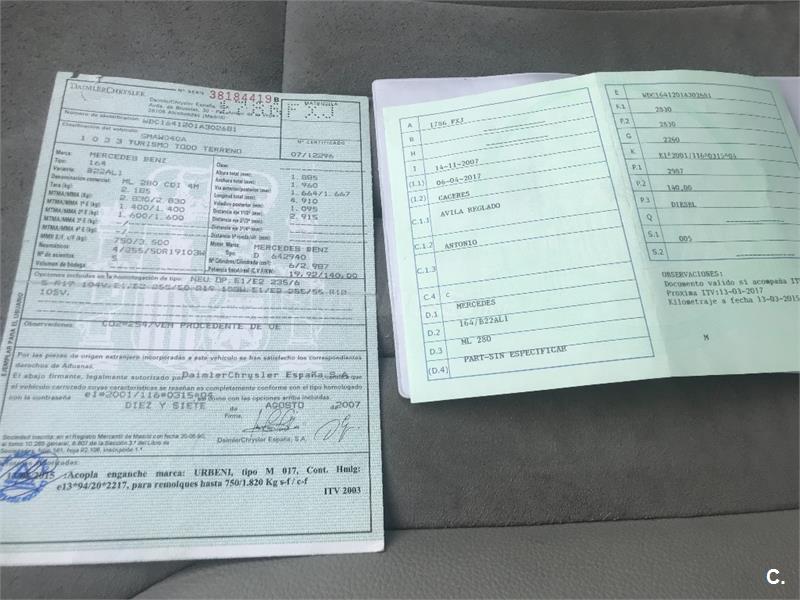 DAIMLERCHRYSLER
DaimlerChrysler España
Avda. de Bruselas, 30
28108 Alcobendas (Madrid)
Nº SERIE 38184419 B
MATRICULA
FXJ
Número de identificación WDC1641201A302681
Clasificación del vehículo SMAW040A
1033 TURISMO TODO TERRENO
Nº CERTIFICADO
07/12296
Marca: MERCEDES BENZ
Tipo: 164
Variante: B22AL1
Denominación comercial: ML 280 CDI 4M
Tara (kg) 2.185
MTMA/MMA (kg) 2.830/2.830
MTMA/MMA 1º E (kg) 1.400/1.400
MTMA/MMA 2º E (kg) 1.600/1.600
MTMA/MMA 3º E (kg) -/-
MTMA/MMA 4º E (kg) -/-
MMR E/F. c/F (kg) 750/3.500
Neumáticos 4/255/50R19103W
Nº de asientos 5
Volumen de bodega
Clase
Altura total (mm) 1.895
Anchura total (mm) 1.960
Vía anterior/posterior (mm) 1.664/1.667
Longitud total (mm) 4.910
Voladizo posterior (mm) 1.095
Distancia eje 1º/2º (mm) 2.915
Distancia eje 2º/3º (mm)
Motor Marca MERCEDES BENZ
Tipo D 642940
Nº Cilindros/Cilindrada (cm³) 6/2.987
Potencia fiscal/real (C.V.F/KW) 19,92/140,00
Opciones incluidas en la homologación de tipo: NEU. OP. E1/E2 235/6
5 R17 104V. E1/E2 255/50 R19 103W. E1/E2 255/55 R18
105V.
EJEMPLAR PARA EL USUARIO
Observaciones: CO2=254/VEH PROCEDENTE DE UE
Por las piezas de origen extranjero incorporadas a este vehículo se han satisfecho los correspondientes
derechos de Aduanas.
El abajo firmante, legalmente autorizado por DaimlerChrysler España S.A. certifica que
el vehículo carrozado cuyas características se reseñan es completamente conforme con el tipo homologado
con la contraseña e1*2001/116*0315*06 así como con las opciones arriba incluidas.
DIEZ Y SIETE de AGOSTO de 2007
Firma,
DaimlerChrysler España, S.A.
Sociedad inscrita: en el Registro Mercantil de Madrid con fecha 20-06-90,
al tomo 10.265 general, 8.807 de la Sección 3.ª del Libro de
Sociedades, folio 161, hoja 92.108, inscripción 1.ª
2015 :Acopla enganche marca: URBENI, tipo M 017, Cont. Hmlg:
e13*94/20*2217, para remolques hasta 750/1.820 Kg s-f / c-f
ITV 2003
A 1786 FXJ
B
H
I 14-11-2007
(I.1) 06-04-2017
(I.2) CACERES
C.1.1 AVILA REGLADO
C.1.2 ANTONIO
C.1.3
C.4 C
D.1 MERCEDES
D.2 164/B22AL1
D.3 ML 280
(D.4) PART-SIN ESPECIFICAR
E WDC1641201A302681
F.1 2830
F.2 2830
G 2260
K E1*2001/116*0315*06
P.1 2987
P.2 140,00
P.3 DIESEL
Q
S.1 005
S.2
OBSERVACIONES:
Documento valido si acompaña IT
Proxima ITV:13-03-2017
Kilometraje a fecha 13-03-2015
M
C.